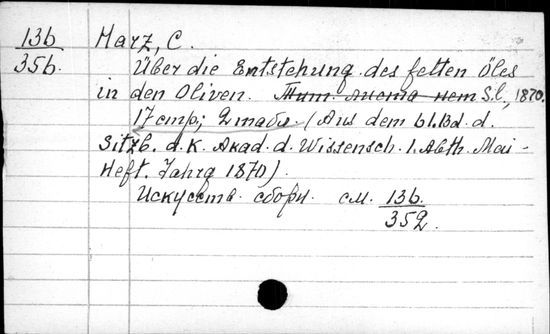 13b Harz, C.
35b. Über die Entstehung des fetten Öles
in den Oliven. Тит. листа нет S.l., 1870.
17 стр; 2 табл. (Aus dem 61.Bd. d.
Sitzb. d. K. Akad. d. Wissensch. I. Abth. Mai-
Heft. Jahrg 1870).
Искусств. сборн. см. 13b.
352.